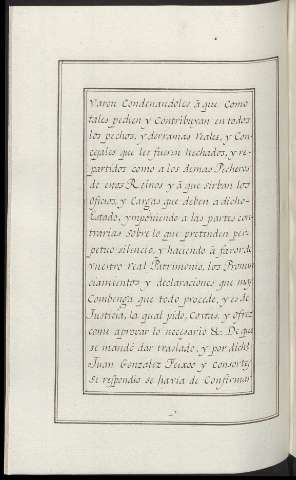 varon Condenandoles á que como
tales pechen y Contribuyan en todos
los pechos, y derramas reales, y Con-
cejales que les fueren hechados, y re-
partidos como a los demas Pecheros
de estos Reinos y á que sirban los
oficios, y Cargas que deben a dicho
Estado, ymponiendo a las partes con-
trarias sobre lo que pretenden per-
petuo silencio, y haciendo á favor de
vuestro real Patrimonio, los Pronun-
ciamientos y declaraciones que mas
Combenga que todo procede, y es de
Justicia, la qual pido, Costas, y ofrez-
come aprovar lo necesario &. De que
se mandó dar traslado, y por dicho
Juan Gonzalez Feixoo y consortes
Se respondio se havia de Confirmar